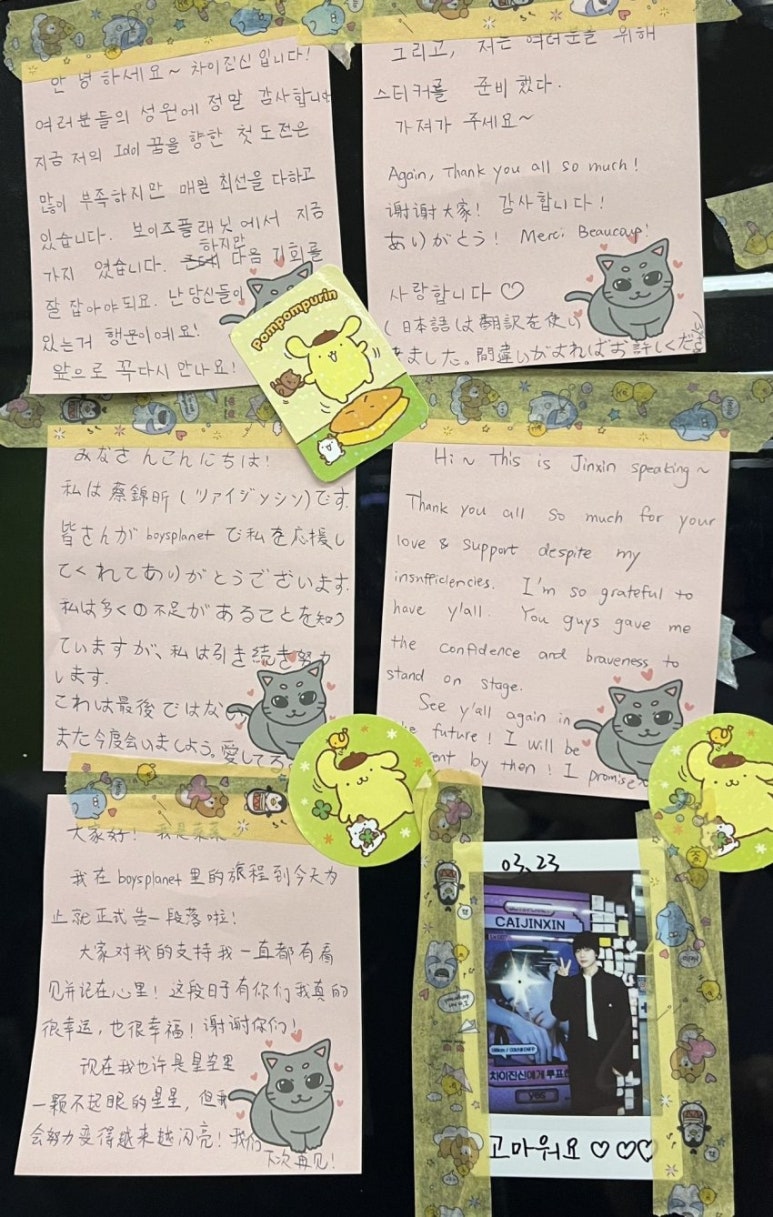 안녕하세요~ 차이진신입니다!
여러분들의 성원에 정말 감사합니다
지금 저의 Idol 꿈을 향한 첫 도전은
많이 부족하지만 매일 최선을 다하고
있습니다. 보이즈플래닛에서 지금
하지만
가지 였습니다. 다음 기회를
잘 잡아야되요. 난 당신들이
있는거 행문이예요!
앞으로 꼭다시 만나요!
그리고, 저는 여러분을 위해
스티커를 준비했다.
가져가 주세요~
Again, Thank you all so much!
谢谢大家! 감사합니다!
ありがとう! Merci Beaucoup!
사랑합니다♡
(日本語は翻訳を使い
きました。間違いがあればお許しくださ
Pompompurin
みなさんこんにちは!
私は蔡錦昕(ツァイジンシン)です.
皆さんが boysplanet で私を応援し
てくれてありがとうございます.
私は多くの不足があることを知っ
ていますが、私は引き続き努力
します.
これは最後ではない
また今度会いましょう。愛してる
Hi~ This is Jinxin speaking~
Thank you all so much for your
love & support despite my
insufficiencies. I'm so grateful to
have y'all. You guys gave me
the confidence and braveness to
stand on stage.
See y'all again in
future! I will be
by then! I promise
大家好! 我是
我在boysplanet里的旅程到今天为
止就正式告一段落啦!
大家对我的支持我一直都有看
见并记在心里! 这段日子有你们我真的
很幸运,也很幸福! 谢谢你们!
现在我也许是星空里
一颗不起眼的星星,但我
会努力变得越来越闪亮! 我们
下次再见!
03.23
CAIJINXIN
차이진신에게 투표
YES
고마워요 ♡♡♡